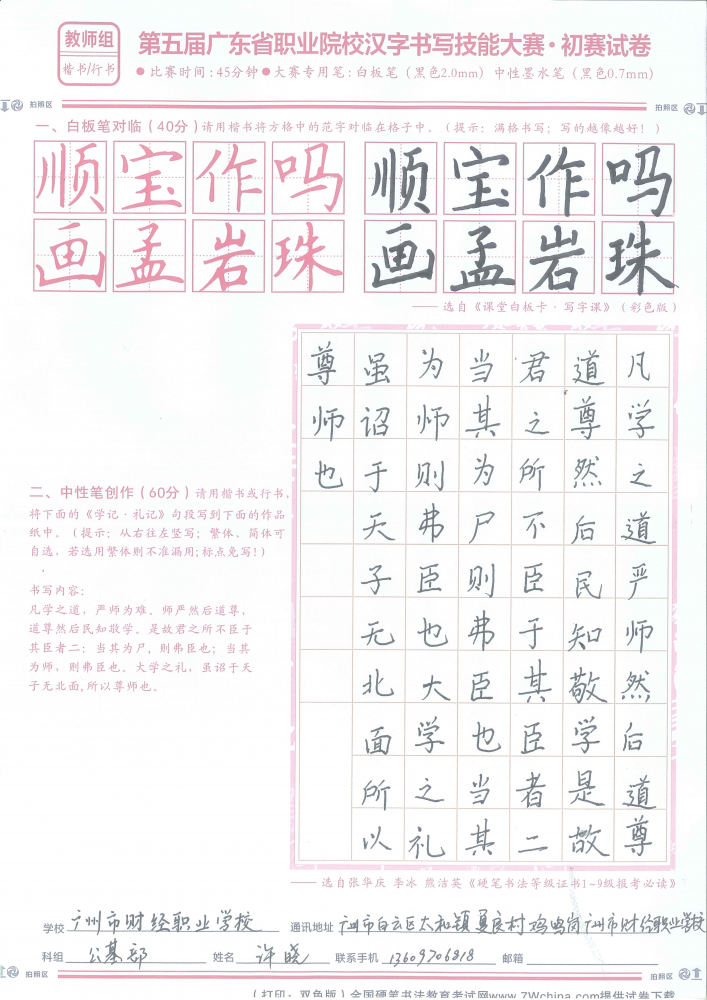 教师组
楷书/行书
第五届广东省职业院校汉字书写技能大赛·初赛试卷
●比赛时间:45分钟●大赛专用笔:白板笔（黑色2.0mm）中性墨水笔（黑色0.7mm）
拍照区
拍照区
一、白板笔对临（40分）请用楷书将方格中的范字对临在格子中。（提示：满格书写；写的越像越好！）
顺宝作吗
画孟岩珠
顺宝作吗
画孟岩珠
—— 选自《课堂白板卡·写字课》（彩色版）
二、中性笔创作（60分）请用楷书或行书，
将下面的《学记·礼记》句段写到下面的作品
纸中。（提示：从右往左竖写；繁体、简体可
自选，若选用繁体则不准漏用;标点免写!）
书写内容:
凡学之道，严师为难。师严然后道尊，
道尊然后民知敬学。是故君之所不臣于
其臣者二：当其为尸，则弗臣也；当其
为师，则弗臣也。大学之礼，虽诏于天
子无北面,所以尊师也。
凡学之道严师然后道尊
道尊然后民知敬学是故
君之所不臣于其臣者二
当其为尸则弗臣也当其
为师则弗臣也大学之礼
虽诏于天子无北面所以
尊师也
—— 选自张华庆 李冰 熊洁英《硬笔书法等级证书1~9级报考必读》
学校 广州市财经职业学校 通讯地址 广州市白云区太和镇夏良村鸡鸣岗广州市财经职业学校
科组 公基部 姓名 许晓 联系手机 13609706818 邮箱
拍照区
拍照区
（打印：双色版）全国硬笔书法教育考试网www.7Wchina.com提供试卷下载